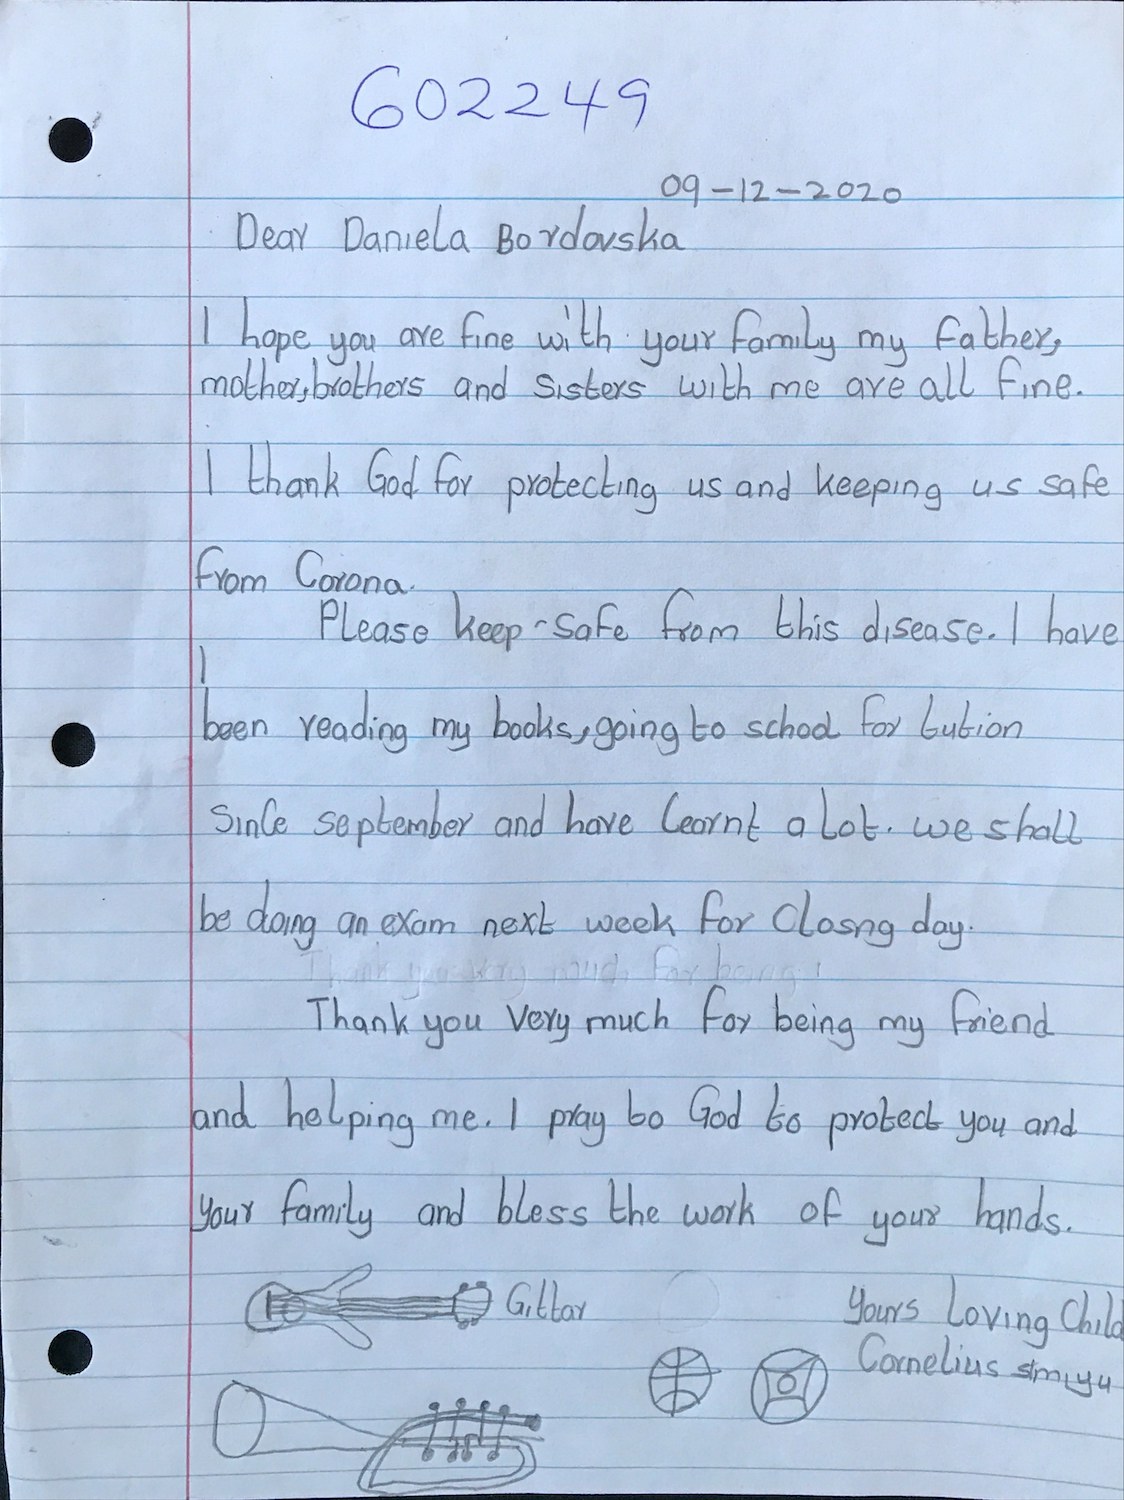 602249
09-12-2020
Dear Daniela Bordovska
I hope you are fine with your family my father,
mother,brothers and sisters with me are all fine.
I thank God for protecting us and keeping us safe
from Corona.
Please keep-safe from this disease. I have
been reading my books, going to school for tution
since september and have learnt a lot. we shall
be doing an exam next week for Closng day.
Thank you very much for being
Thank you Very much for being my friend
and helping me. I pray to God to protect you and
your family and bless the work of your hands.
Gittar
Yours Loving Child
Cornelius simiyu